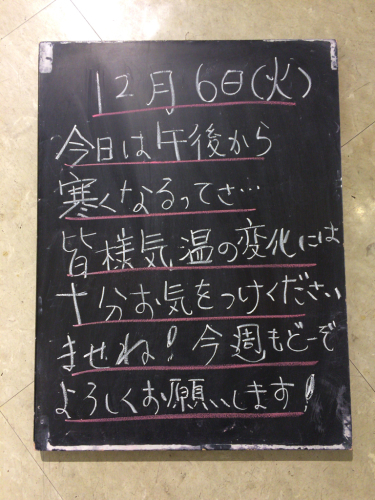 12月6日(火)
今日は午後から
寒くなるってさ…
皆様気温の変化には
十分お気をつけください
ませね!今週もどーぞ
よろしくお願いします!